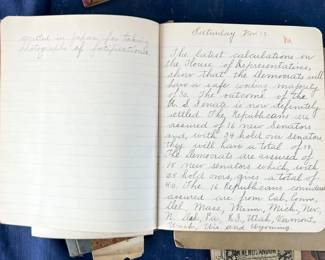 erected in Japan for taking
photographs of fortifications.
Saturday Nov. 12.
The latest calculations on
the House of Representatives,
show that the Democrats will
have a safe working majority
of 30. The outcome of the
U.S. Senate is now definitely
settled. The Republicans are
assured of 16 new Senators
and, with 34 hold over Senators
they will have a total of
The Democrats are assured of
15 new senators which, with
25 hold overs, gives a total of
40. The 16 Republicans considered
assured are from Cal, Conn,
Del, Mass, Minn, Mich, Nev,
N. Dak, Pa, R.I, Utah, Vermont,
Wash, Wis and Wyoming.
MEMORANDUM